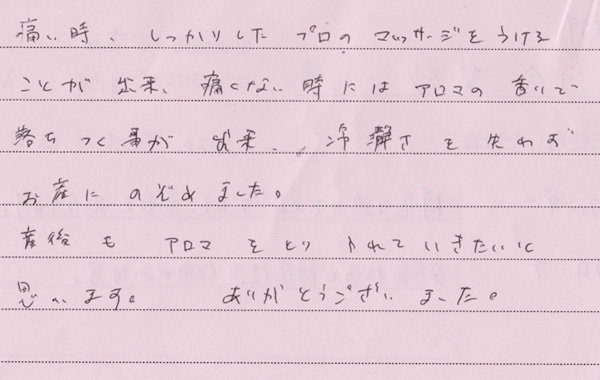 痛い時、しっかりした プロの マッサージをうける
ことが 出来、痛くない時には アロマの 香りで
落ちつく事が 出来、冷静さを失わず
お産に のぞめました。
産後も アロマを とり入れて いきたいと
思います。 ありがとうござい ました。